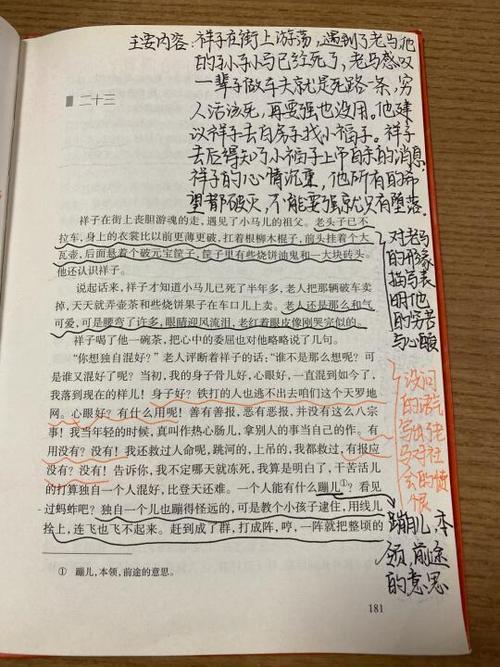 主要内容：祥子在街上游荡，遇到了老马，他
的孙子小马已经死了，老马感叹
一辈子做车夫就是死路一条，穷
人活该死，再要强也没用。他建
议祥子去白房子找小福子。祥子
去后得知了小福子上吊自杀的消息，
祥子的心情沉重，他所有的希
望都破灭，不能要强就只有堕落。
二十三
祥子在街上丧胆游魂的走，遇见了小马儿的祖父。老头子已不
拉车，身上的衣裳比以前更薄更破，扛着根柳木棍子，前头挂着个大
瓦壶，后面悬着个破元宝筐子，筐子里有些烧饼油鬼和一大块砖头。
他还认识祥子。
说起话来，祥子才知道小马儿已死了半年多，老人把那辆破车卖
掉，天天就弄壶茶和些烧饼果子在车口儿上卖。老人还是那么和气
可爱，可是腰弯了许多，眼睛迎风流泪，老红着眼皮像刚哭完似的。
祥子喝了他一碗茶，把心中的委屈也对他略略说了几句。
“你想独自混好？”老人评断着祥子的话；“谁不是那么想呢？可
是谁又混好了呢？当初，我的身子骨儿好，心眼好，一直混到如今了，
我落到现在的样儿！身子好？铁打的人也逃不出去咱们这个天罗地
网。心眼好？有什么用呢！善有善报，恶有恶报，并没有这么八宗
事！我当年轻的时候，真叫作热心肠儿，拿别人的事当自己的作。有
用没有？没有！我还救过人命呢，跳河的，上吊的，我都救过，有报应
没有？没有！告诉你，我不定哪天就冻死，我算是明白了，干苦活儿
的打算独自一个人混好，比登天还难。一个人能有什么蹦儿①？看见
过蚂蚱吧？独自一个儿也蹦得怪远的，可是教个小孩子逮住，用线儿
拴上，连飞也飞不起来。赶到成了群，打成阵，哼，一阵就把整顷的
① 蹦儿，本领，前途的意思。
181
对老马
的形象
描写表
明他
的穷苦
与心酸
设问
的语气
写出老
马对社
会的愤
恨
蹦儿，本
领，前途
的意思